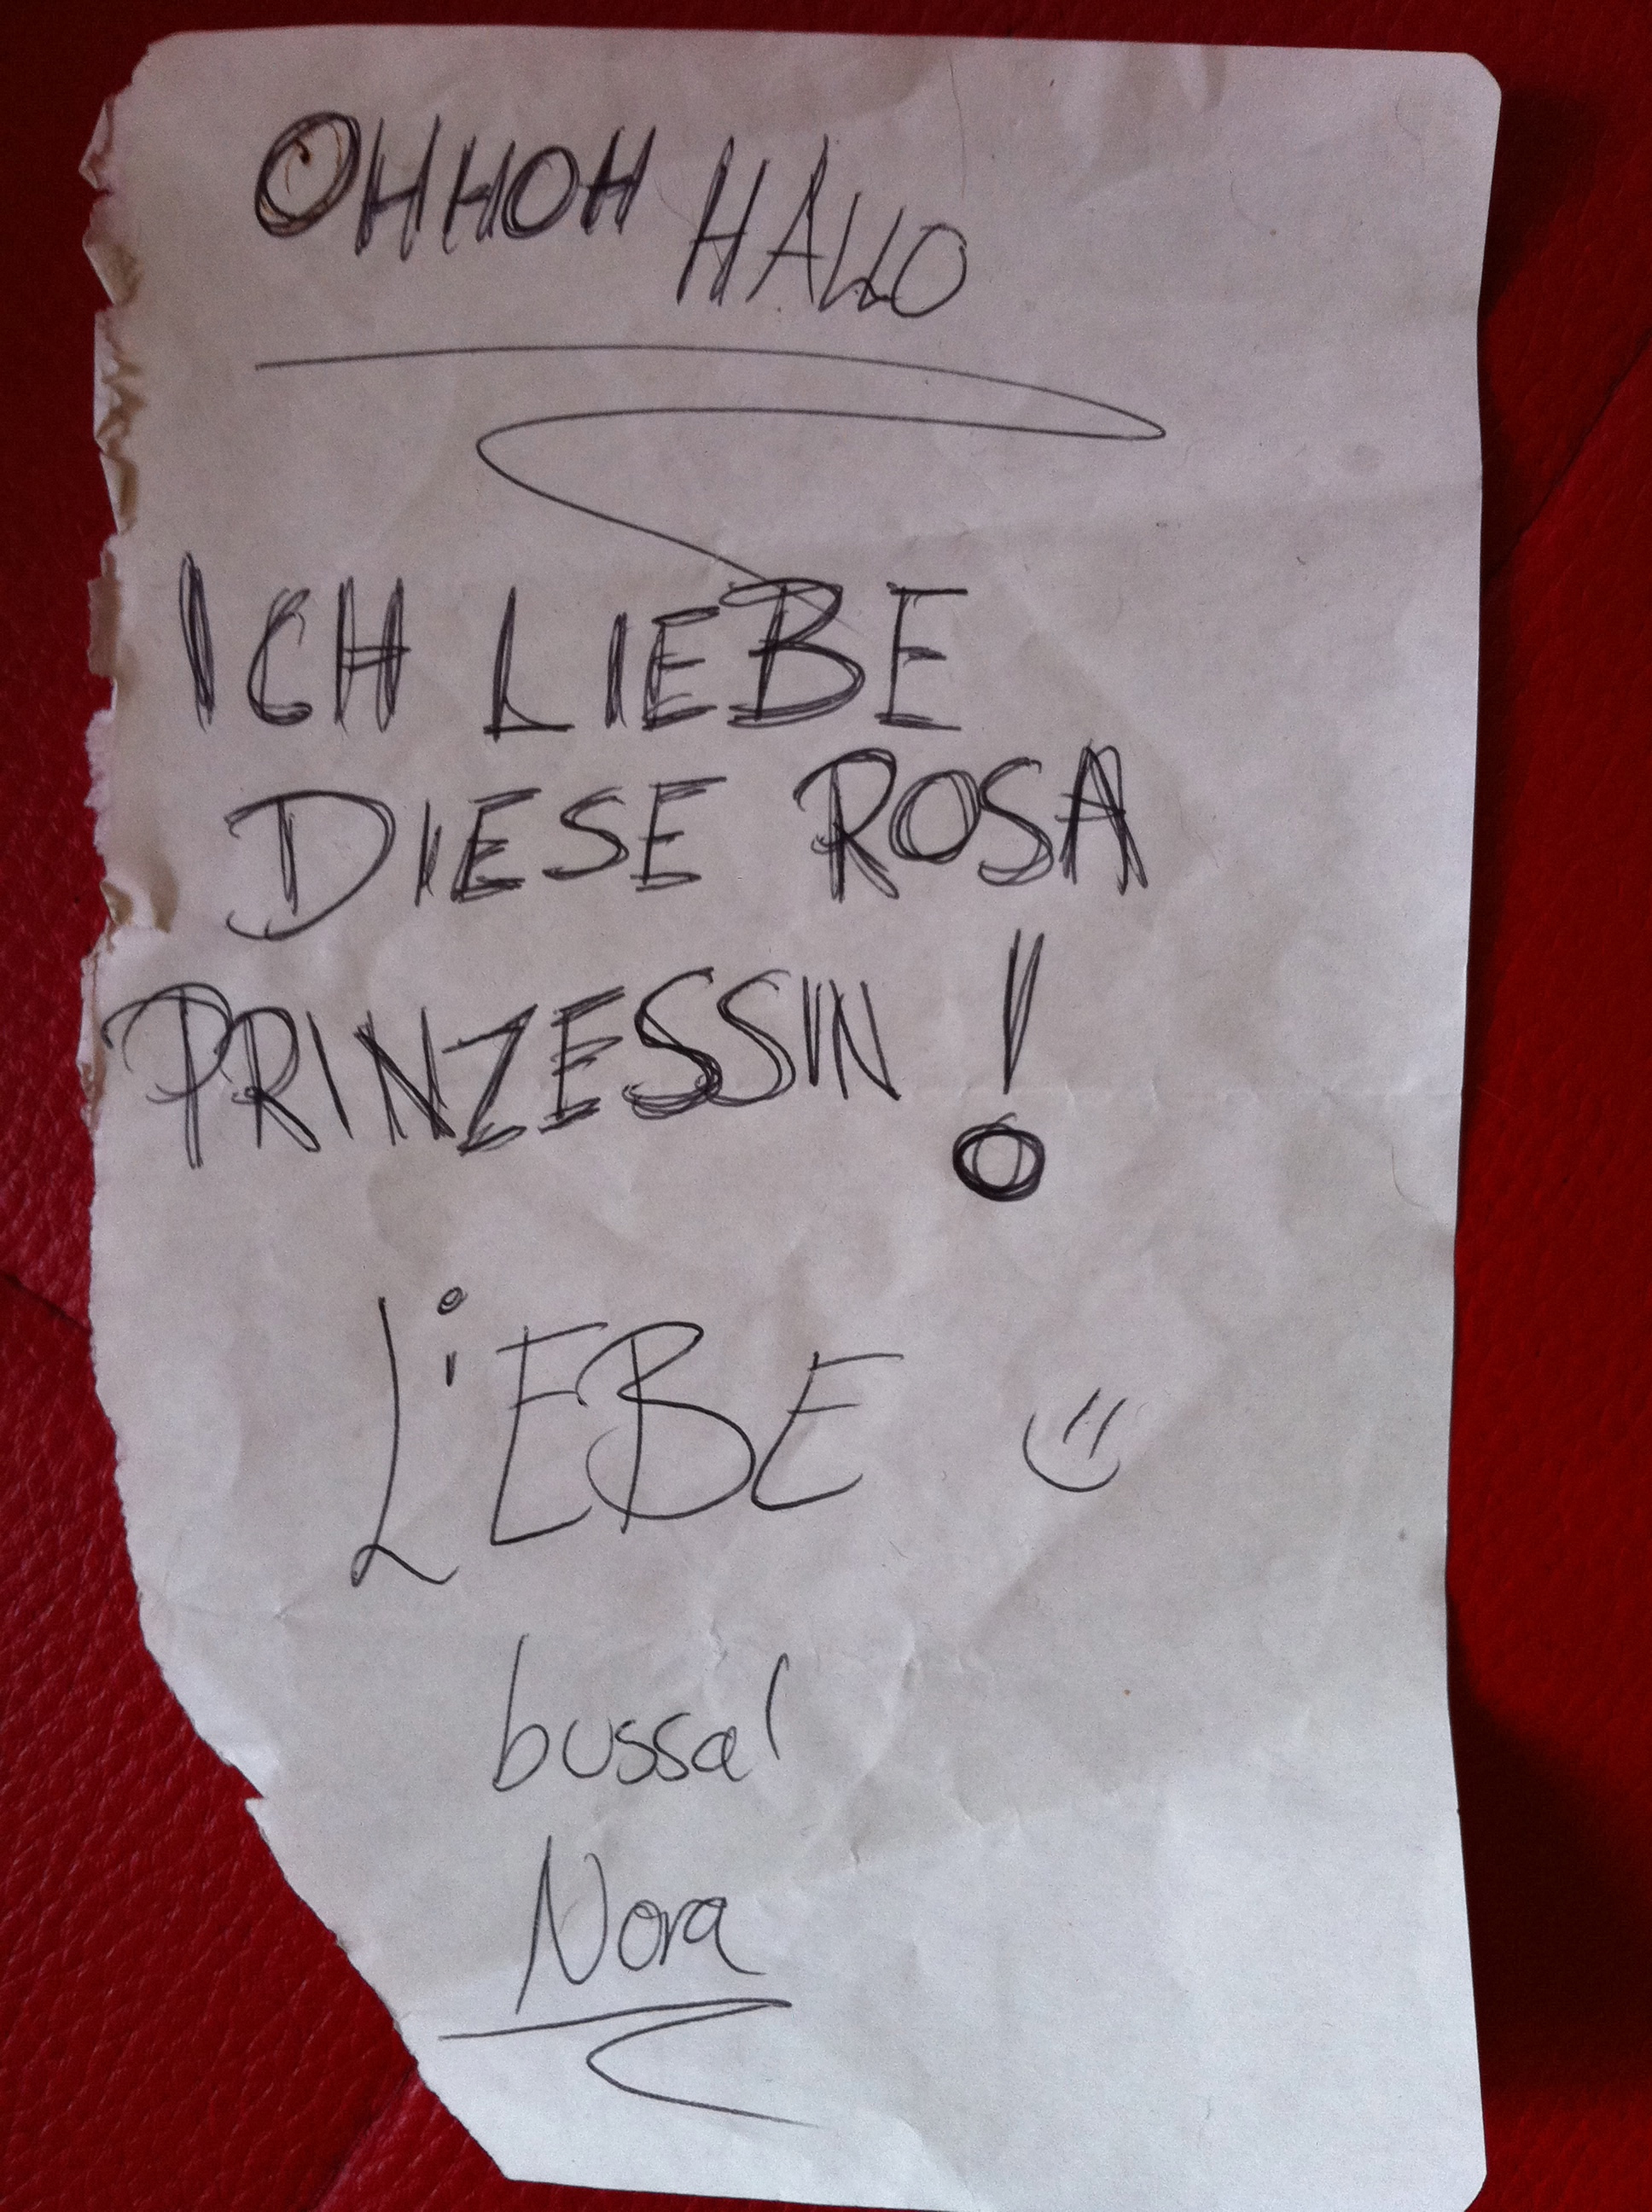 OHHOH HALLO
ICH LIEBE
DIESE ROSA
PRINZESSIN !
LiEBE
bussal
Nora